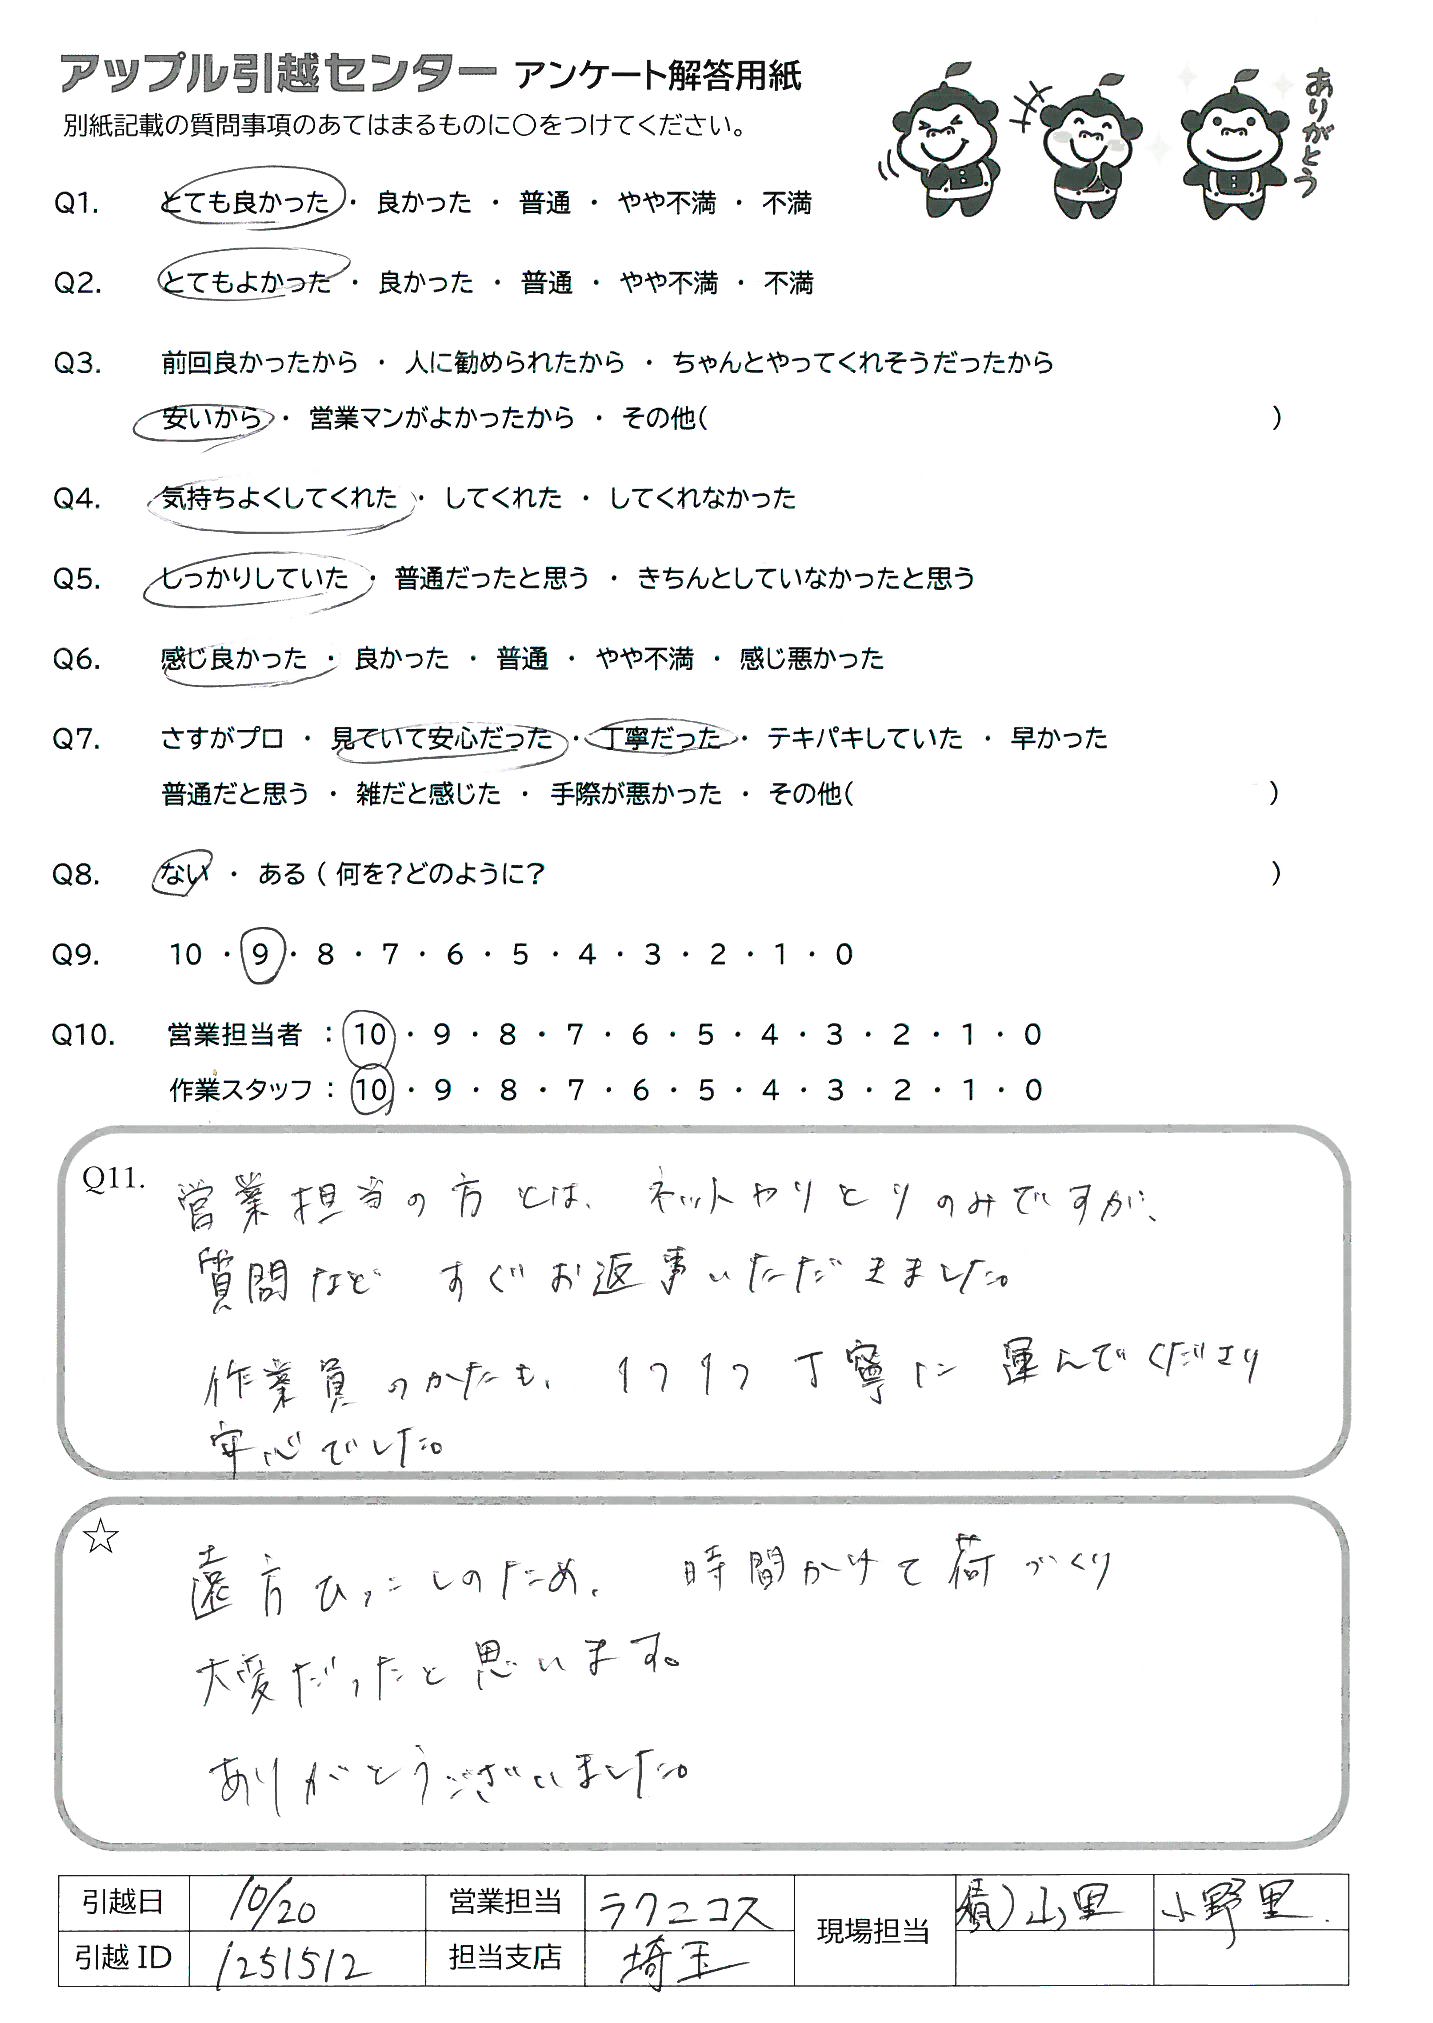 アップル引越センター アンケート解答用紙
別紙記載の質問事項のあてはまるものに○をつけてください。
ありがとう
Q1. とても良かった ・ 良かった ・ 普通 ・ やや不満 ・ 不満
Q2. とてもよかった ・ 良かった ・ 普通 ・ やや不満 ・ 不満
Q3. 前回良かったから ・ 人に勧められたから ・ ちゃんとやってくれそうだったから
安いから ・ 営業マンがよかったから ・ その他( )
Q4. 気持ちよくしてくれた ・ してくれた ・ してくれなかった
Q5. しっかりしていた ・ 普通だったと思う ・ きちんとしていなかったと思う
Q6. 感じ良かった ・ 良かった ・ 普通 ・ やや不満 ・ 感じ悪かった
Q7. さすがプロ ・ 見ていて安心だった ・ 丁寧だった ・ テキパキしていた ・ 早かった
普通だと思う ・ 雑だと感じた ・ 手際が悪かった ・ その他( )
Q8. ない ・ ある ( 何を?どのように? )
Q9. 10 ・ 9 ・ 8 ・ 7 ・ 6 ・ 5 ・ 4 ・ 3 ・ 2 ・ 1 ・ 0
Q10. 営業担当者 : 10 ・ 9 ・ 8 ・ 7 ・ 6 ・ 5 ・ 4 ・ 3 ・ 2 ・ 1 ・ 0
作業スタッフ : 10 ・ 9 ・ 8 ・ 7 ・ 6 ・ 5 ・ 4 ・ 3 ・ 2 ・ 1 ・ 0
Q11. 営業担当の方とは、ネットやりとりのみですが、
質問など すぐお返事いただきました。
作業員のかたも、1つ1つ丁寧に運んでくださり
安心でした。
☆ 遠方ひっこしのため、時間かけて荷づくり
大変だったと思います。
ありがとうございました。
引越日 10/20 営業担当 ラクニコス 現場担当 積)山里 小野里.
引越ID 1251512 担当支店 埼玉